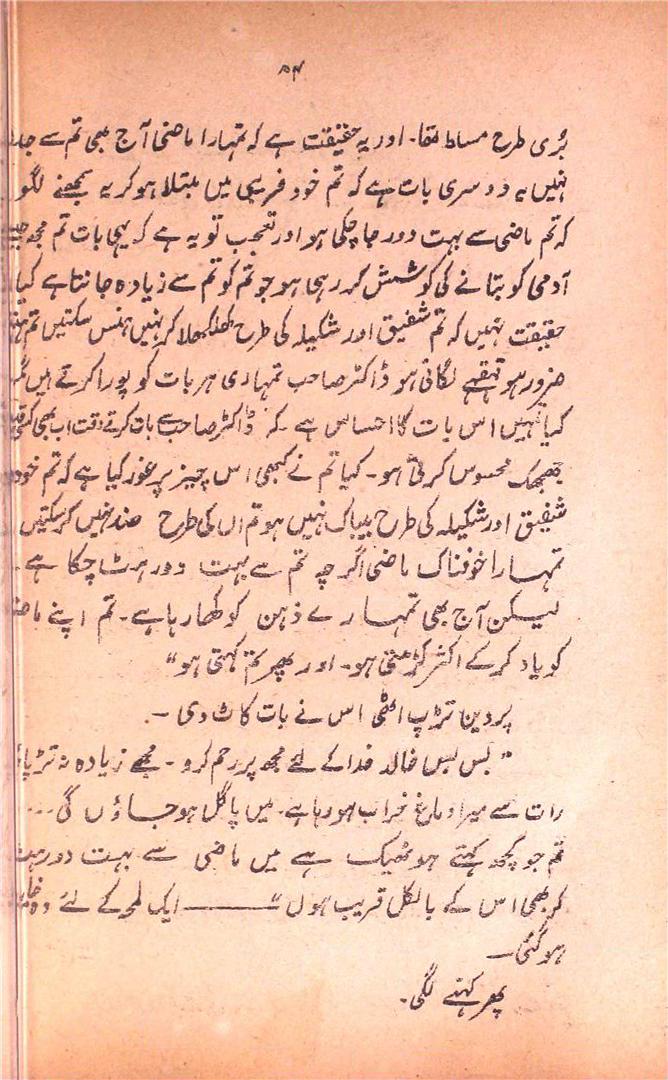 ۵۴
بُری طرح مسلط تھا۔ اور یہ حقیقت ہے کہ تمہارا ماضی آج بھی تم سے جدا
نہیں یہ دوسری بات ہے کہ تم خود فریبی میں مبتلا ہو کر یہ سمجھنے لگو
کہ تم ماضی سے بہت دور جا چکی ہو اور تعجب تو یہ ہے کہ یہی بات تم مجھ جیسے
آدمی کو بتانے کی کوشش کر رہی ہو جو تم کو تم سے زیادہ جانتا ہے کیا
حقیقت نہیں کہ تم شفیق اور شکیلہ کی طرح کھلکھلا کر نہیں ہنس سکتیں تم
ضرور ہو قہقہے لگاتی ہو ڈاکٹر صاحب تمہاری ہر بات کو پورا کرتے ہیں
کیا تمہیں اس بات کا احساس ہے کہ ڈاکٹر صاحب سے بات کرتے وقت اب بھی
جھجھک محسوس کرتی ہو۔ کیا تم نے کبھی اس چیز پر غور کیا ہے کہ تم خود
شفیق اور شکیلہ کی طرح بیباک نہیں ہو تم اں کی طرح ضد نہیں کر سکتیں
تمہارا خوفناک ماضی اگرچہ تم سے بہت دور ہٹ چکا ہے۔
لیکن آج بھی تمہارے ذہن کو کھا رہا ہے۔ تم اپنے
کو یاد کر کے اکثر کڑھتی ہو۔ اور پھر تم کہتی ہو“
پروین تڑپ اٹھی اس نے بات کاٹ دی ۔۔
”بس بس خالد خدا کے لئے مجھ پر رحم کرو ۔ مجھے زیادہ نہ تڑپاؤ
رات سے میرا دماغ خراب ہو رہا ہے۔ میں پاگل ہو جاؤں گی ...
تم جو کچھ کہتے ہو ٹھیک ہے میں ماضی سے بہت دور ہٹ
کر بھی اس کے بالکل قریب ہوں“ ——— ایک لمحہ کے لئے وہ
ہو گئی۔
پھر کہنے لگی۔